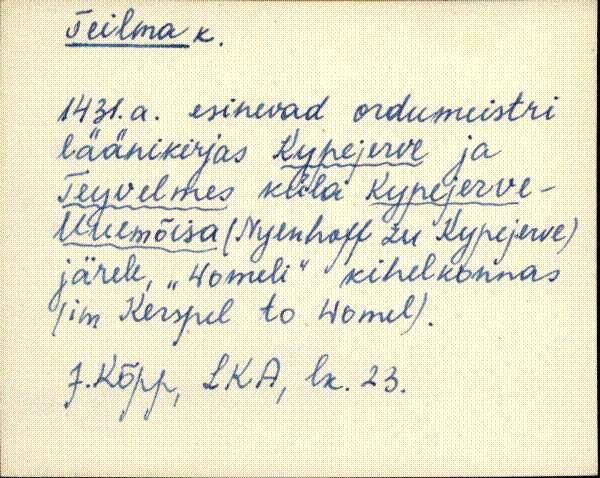 Teilma k.
1431.a. esinevad ordumeistri
läänikirjas Kypejerve ja
Teyvelmes küla Kypejerve-
Uuemõisa (Nyenhoff zu Kypejerve)
järele, „Womeli" kihelkonnas
(im Kerspel to Womel).
J. Kõpp, LKA, lk. 23.